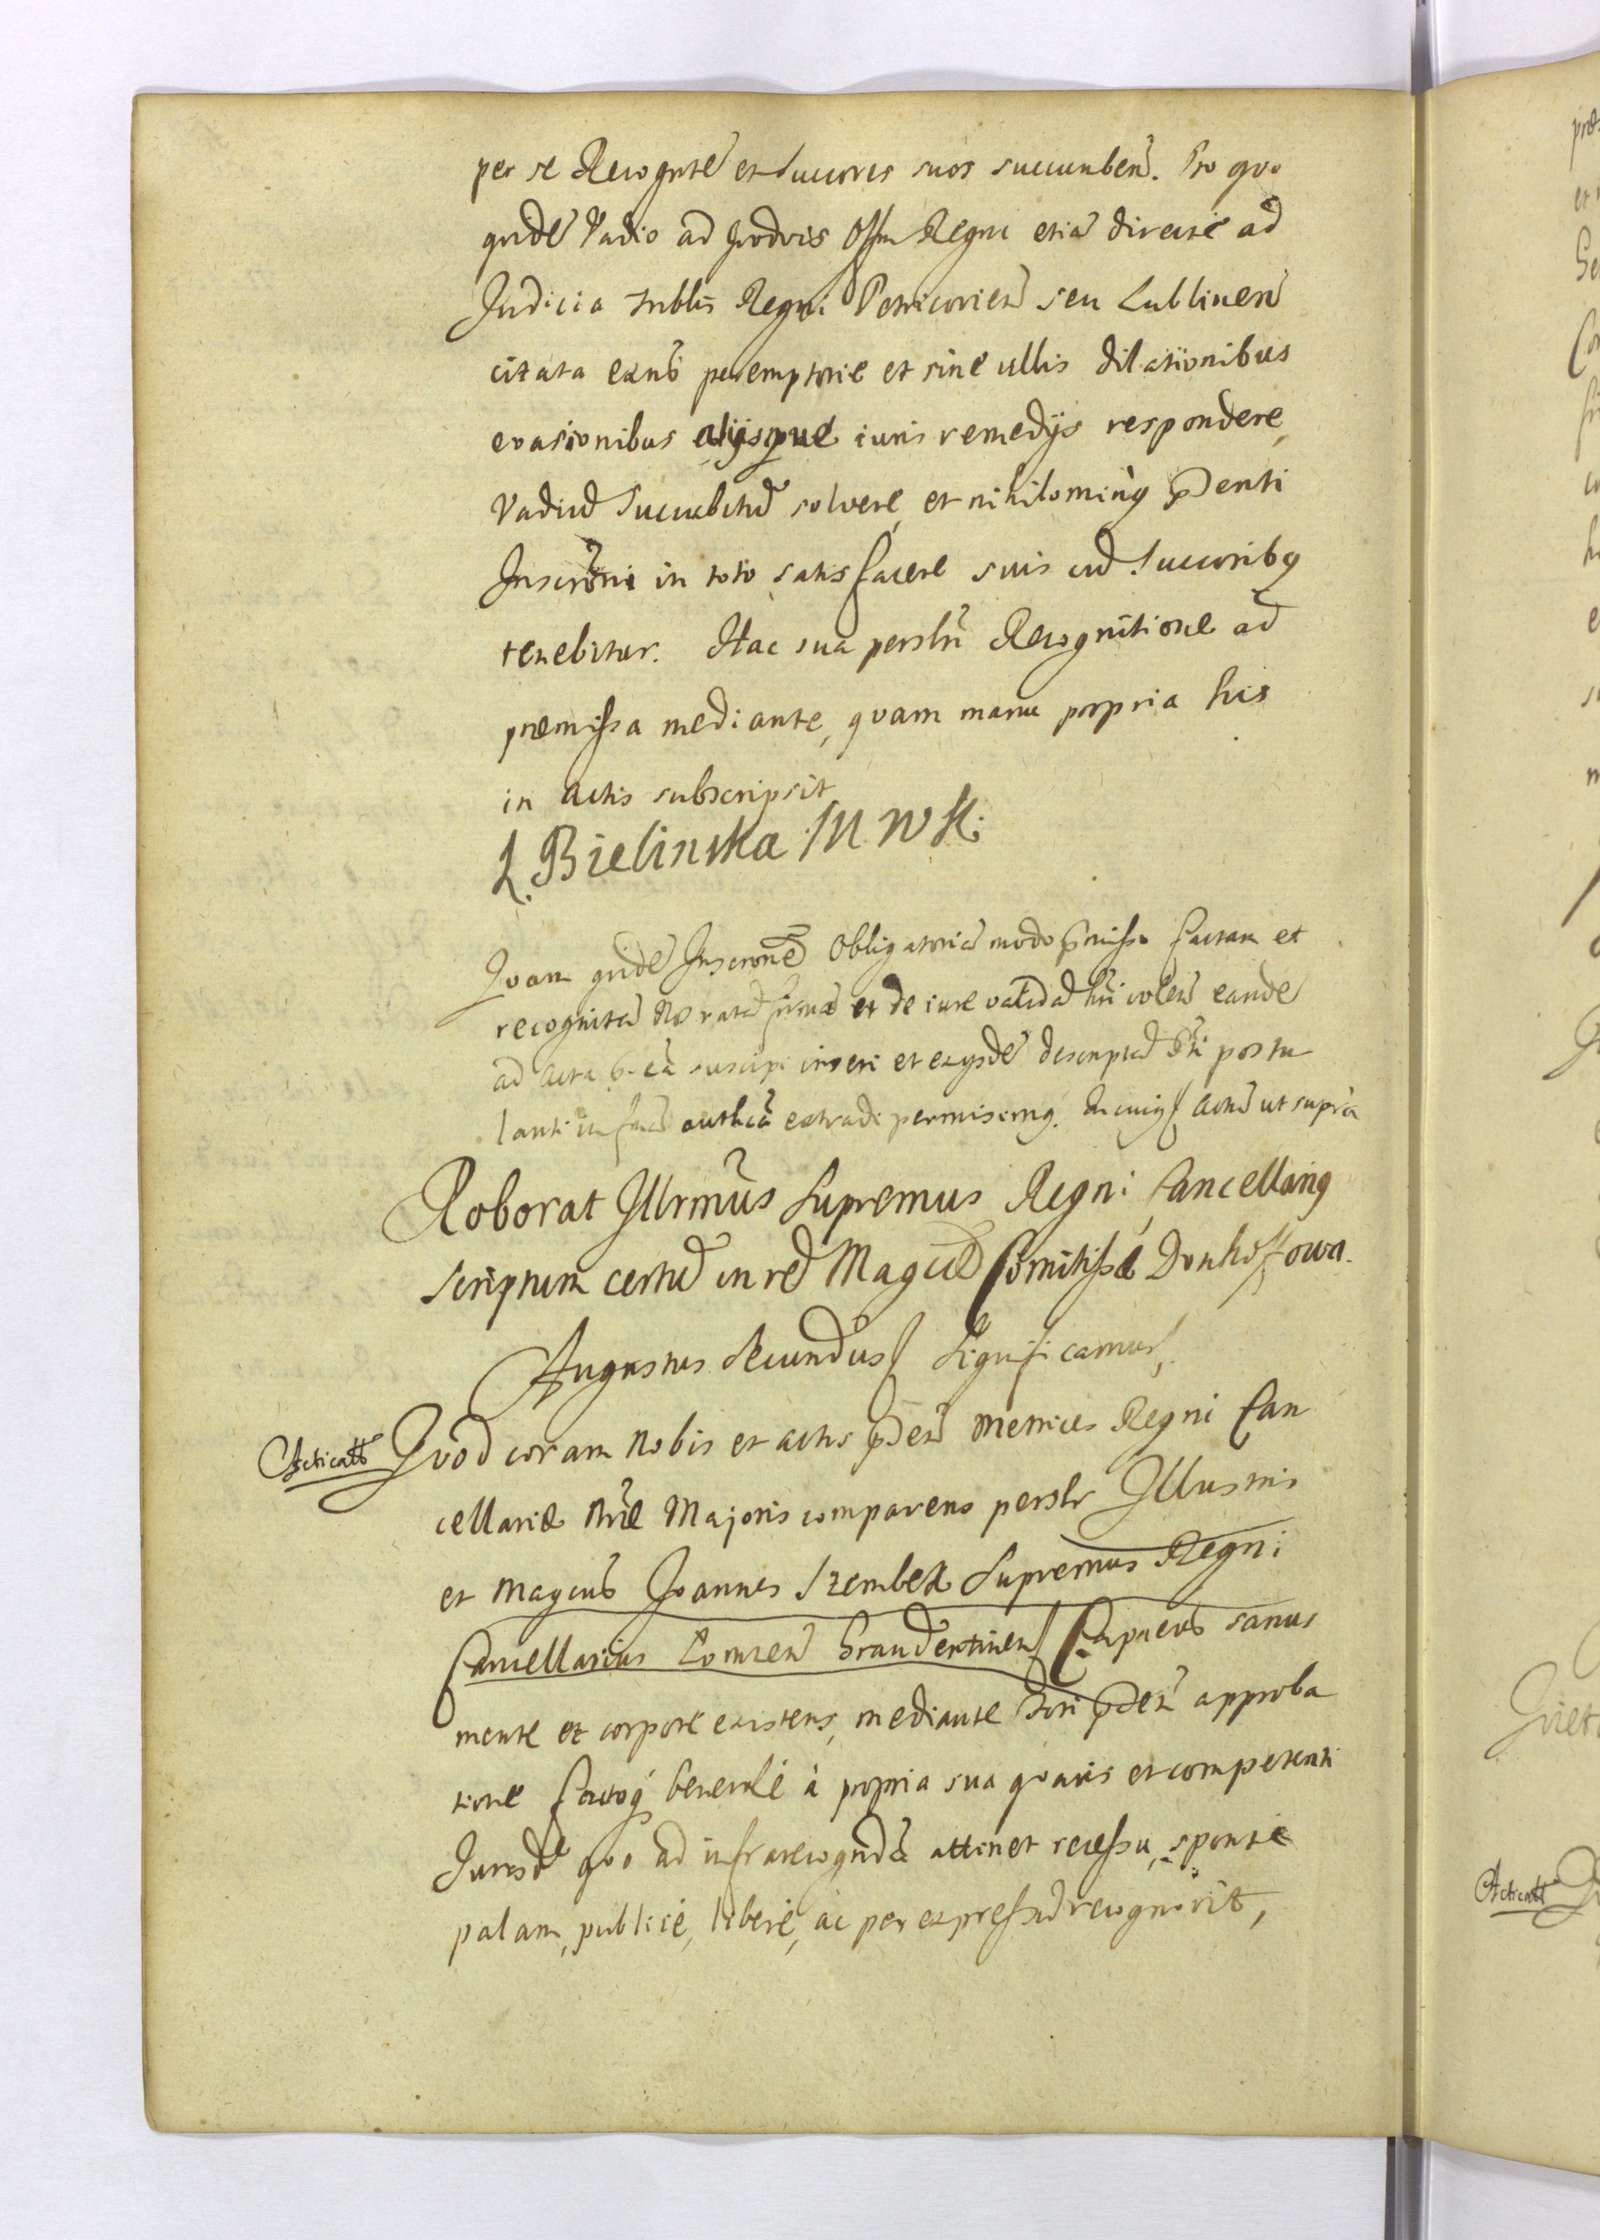 per se Recognte et Succores suos succumben. Pro quo
quide Vadio ad quodvis Offm Regni etia directe ad
Judicia Triblis Regni Petricovien seu Lublinen
citata exns peremptorie et sine ullis dilationibus
evasionibus alijsque iuris remedijs respondere,
Vadiu Succubitu solvere, et nihilominq pdenti
Inscrōni in toto satisfacere suis cu Succoribq
tenebitur. Hac sua persli Recognitione ad
præmissa mediante, quam manu propria his
in Actis subscripsit
L. Bielinska M W K.
Quam quide Inscrone Obligatoria modo pmisso factam et
recognita Nos rata firma et de iure valida hri volen eande
ad Acta suscipi inseri et eiqsde descripta pti postu
lanti in fma authca extradi permisimq. In cuiq Actu ut supra
Roborat Illrmus Supremus Regni Cancellariq
Scriptum certu in re Magcæ Comitissæ Donhoffowa.
Augustus Secundus Significamus,
Acticatt Quod coram Nobis et actis pden Metrices Regni Can
cellariæ Nræ Majoris comparens perslr Illustris
et Magcus Joannes Szembek Supremus Regni
Cancellarius Lomzen Graudentinen Capneus sanus
mente et corpore existens, mediante fori pden approba
tione factoq benevole à propria sua quavis et competenti
Jurisde quo ad infrarecognda attinet recessu, sponte
palam, publice, libere, ac per expressu recognovit,
Acticatt